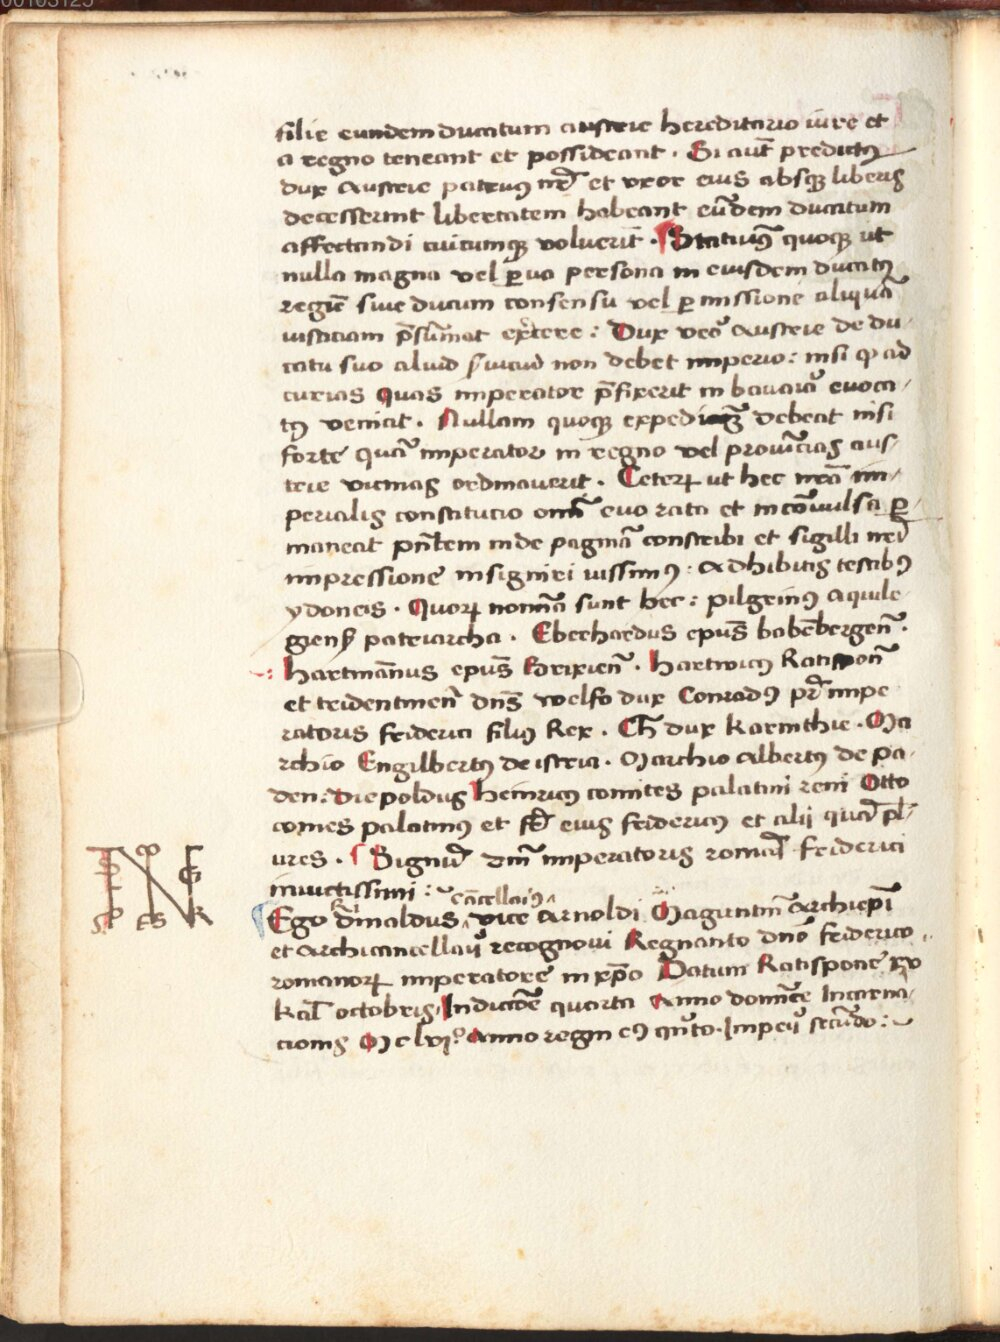 00103125
filie eundem ducatum austrie hereditario iure et
a regno teneant et possideant . Si aut̄ predictꝰ
dux Austrie patruꝰ nr̄ et vxor eius absqꝫ liberis
decesserint libertatem habeant eūdem ducatum
affectandi cuicumqꝫ voluerit̄ . Statuimꝰ quoqꝫ ut
nulla magna vel ꝑua persona in eiusdem ducatꝰ
regiē siue ducum consensu vel ꝑmissione aliquā
iusticiam p̄sūmat exͬcere : Dux veō Austrie de du-
catu suo aliud s̄uiciū non debet imperio : nisi ꝙ ad
curias Quas imperator p̄fixerit in bauaria euoca-
tꝰ veniat . Nullam quoqꝫ expedi debeat nisi
forte quā imperator in regno vel prouīcias aus-
trie vicinas ordinauerit . Ceterꝝ ut hec nr̄a im-
perialis constitucio omī euo rata et incōuulsa ꝑ-
maneat pn̄tem inde paginā conscribi et sigilli nr̄i
impressione insigniri iussimꝰ : Adhibitis testibꝰ
ydoneis . Quorꝝ nomīa sunt hec : pilgrinꝰ aquile-
giens̄ patriarcha . Eberhardus epūs babēbergen̄ .
hartmānus epūs Brixien̄ . hartwicꝰ Ratispon̄
et tridentinen̄ dn̄s welfo dux Conradꝰ pr̄ impe-
ratoris friderici filiꝰ Rex . H̄ dux karinthie . Ma-
rchio Engilbertꝰ de istria . Marchio Albertꝰ de pa-
den : Diepoldus heinricꝰ comites palatini reni Otto
comes palatinꝰ et fr̄ eius fridericꝰ et alij quā pl-
ures . Signū dn̄i imperatoris romā friderici
inuictissimi :
cācellariꝰ
Ego Rēinaldus vice Arnoldi Maguntin̄ Archiep̄i
et Archicancellarij recognoui Regnante dnō friderico
romanorꝝ imperatore in xp̄o Datum Ratispone xv
kal̄ octobris Indictōe quarta Anno domīce Incarna-
cionis M c lvjº Anno regni eꝰ quīto . Impeij secūdo :